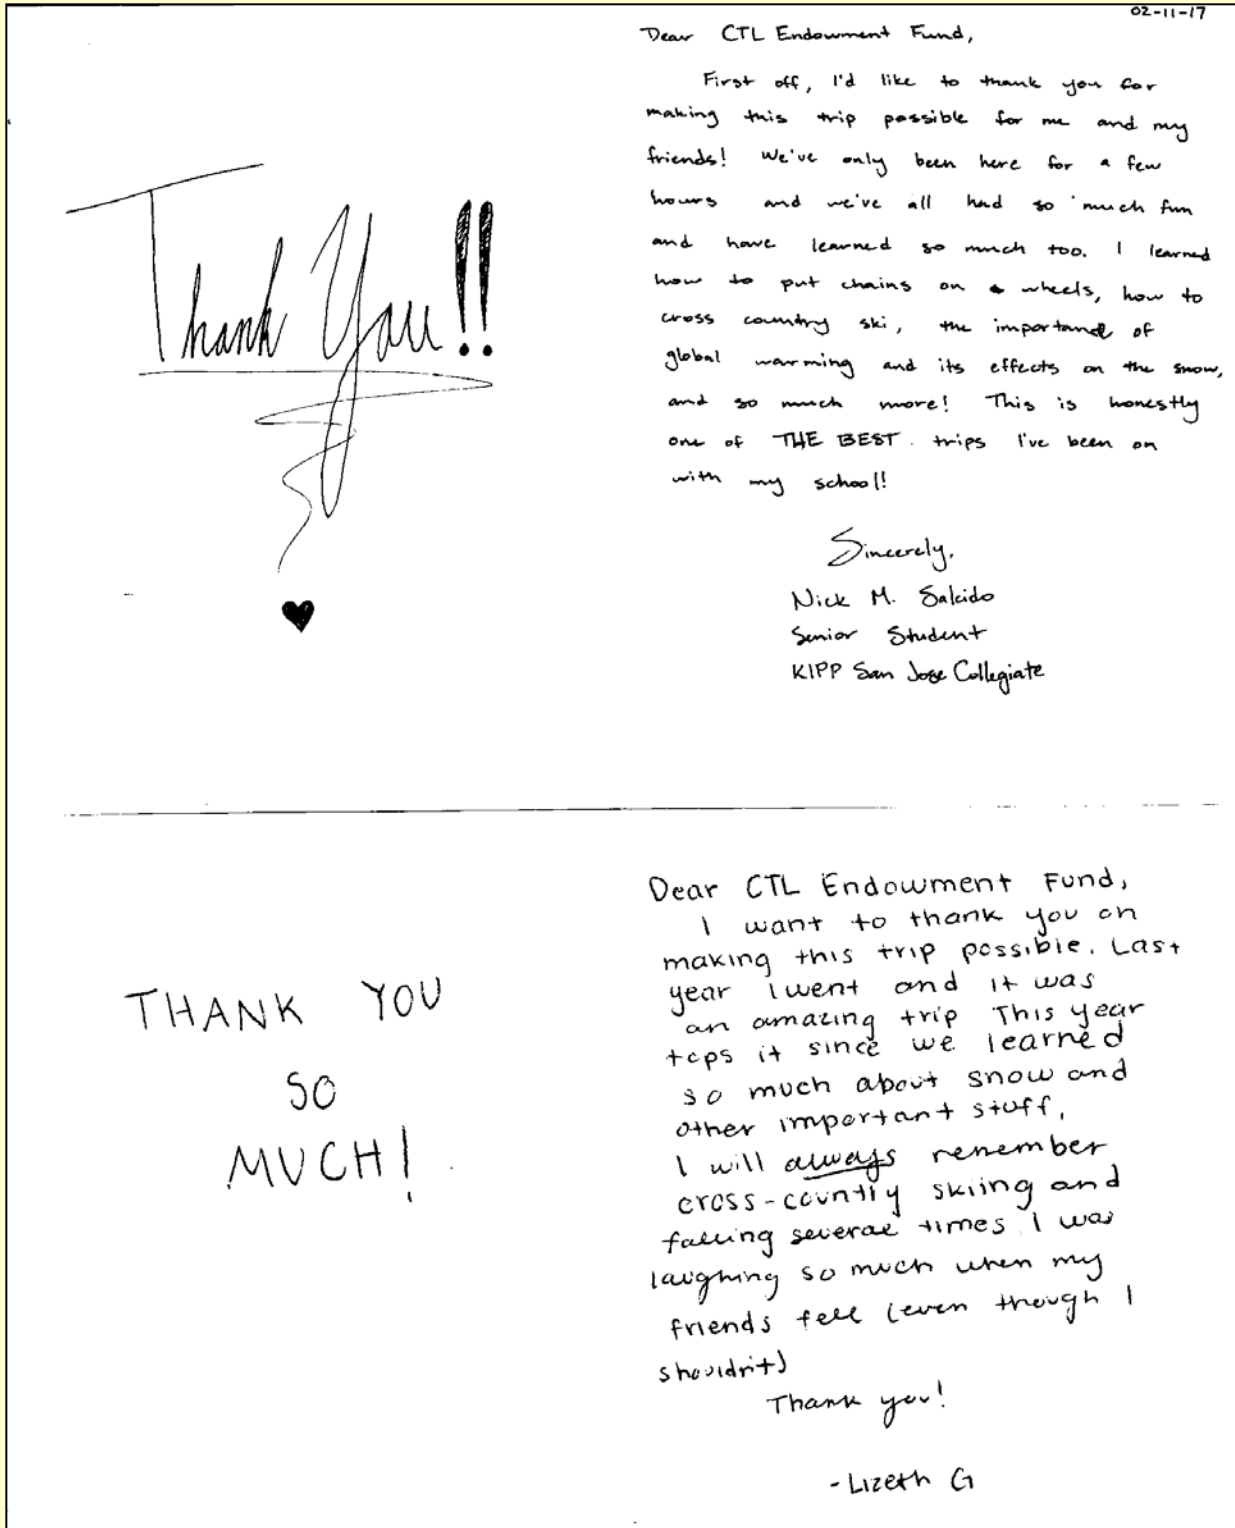 Thank You!!
02-11-17
Dear CTL Endowment Fund,
First off, I'd like to thank you for
making this trip possible for me and my
friends! We've only been here for a few
hours and we've all had so much fun
and have learned so much too. I learned
how to put chains on wheels, how to
cross country ski, the importance of
global warming and its effects on the snow,
and so much more! This is honestly
one of THE BEST trips I've been on
with my school!
Sincerely,
Nick M. Salcido
Senior Student
KIPP San Jose Collegiate
THANK YOU
SO
MUCH!
Dear CTL Endowment Fund,
I want to thank you on
making this trip possible. Last
year I went and it was
an amazing trip This year
tops it since we learned
so much about snow and
other important stuff.
I will always remember
cross-country skiing and
falling several times I was
laughing so much when my
friends fell (even though I
shouldn't)
Thank you!
-Lizeth G